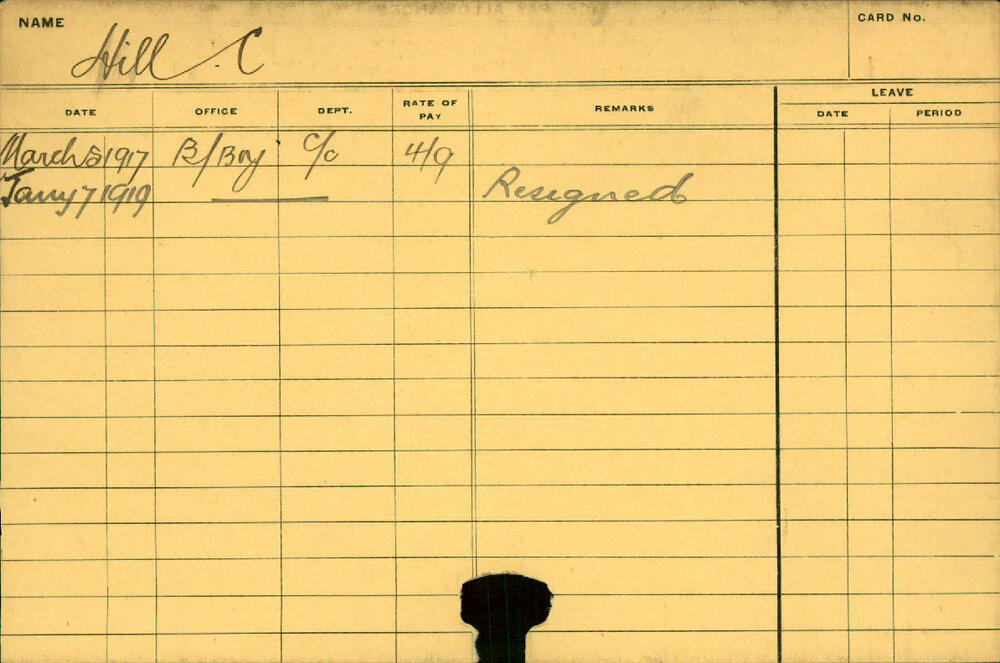 NAME
Hill . C
CARD No.
DATE OFFICE DEPT. RATE OF PAY REMARKS LEAVE
DATE PERIOD
March 5 1917 B/Boy C/o 4/9
Jany 7 1919 Resigned